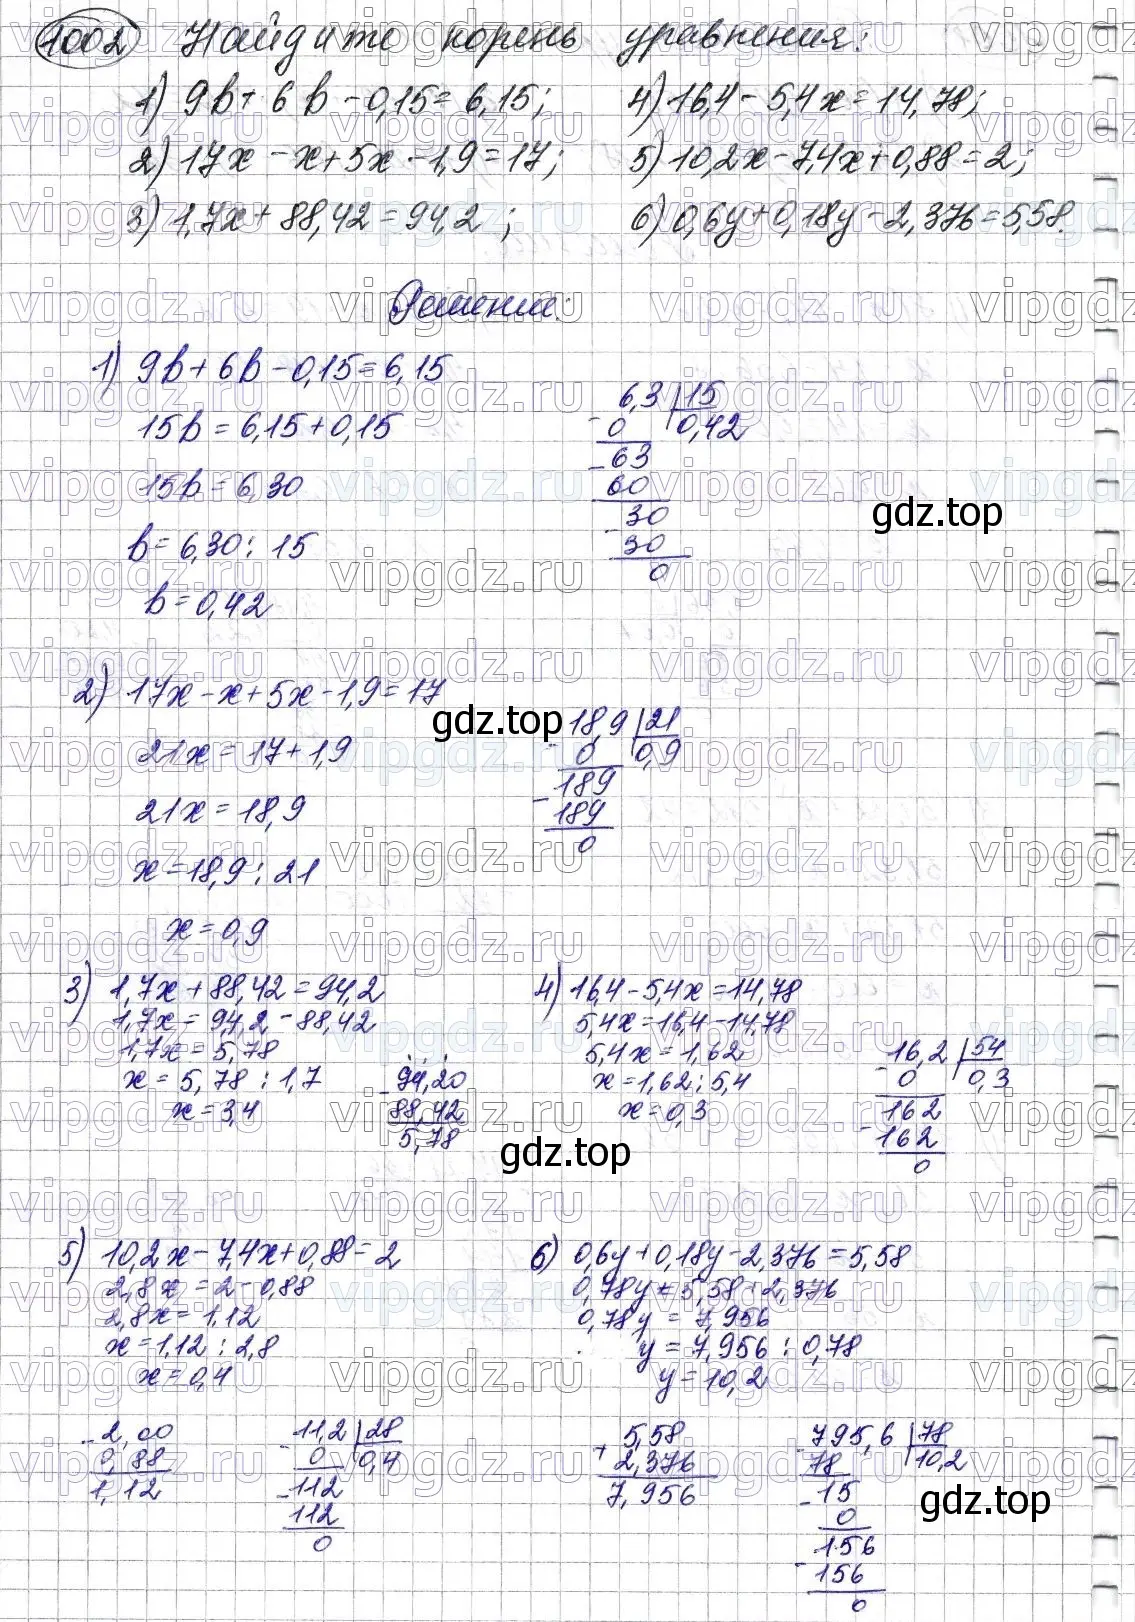 1002 Найдите корень уравнения:
1) 9b + 6b - 0,15 = 6,15;
4) 16,4 - 5,4x = 14,78;
2) 17x - x + 5x - 1,9 = 17;
5) 10,2x - 7,4x + 0,88 = 2;
3) 1,7x + 88,42 = 94,2 ;
6) 0,6y + 0,18y - 2,376 = 5,58.
Решение:
1) 9b + 6b - 0,15 = 6,15
15b = 6,15 + 0,15
15b = 6,30
b = 6,30 : 15
b = 0,42
6,3 | 15
- 0 0,42
- 63
60
- 30
30
0
gdz.top
2) 17x - x + 5x - 1,9 = 17
21x = 17 + 1,9
21x = 18,9
x = 18,9 : 21
x = 0,9
gdz.top
- 18,9 | 21
0 0,9
- 189
189
0
3) 1,7x + 88,42 = 94,2
1,7x = 94,2 - 88,42
1,7x = 5,78
x = 5,78 : 1,7
x = 3,4
- 94,20
88,42
5,78
4) 16,4 - 5,4x = 14,78
5,4x = 16,4 - 14,78
5,4x = 1,62
x = 1,62 : 5,4
x = 0,3
- 16,2 | 54
0 0,3
- 162
162
0
gdz.top
5) 10,2x - 7,4x + 0,88 = 2
2,8x = 2 - 0,88
2,8x = 1,12
x = 1,12 : 2,8
x = 0,4
- 2,00
0,88
1,12
- 11,2 | 28
0 0,4
- 112
112
0
6) 0,6y + 0,18y - 2,376 = 5,58
0,78y = 5,58 + 2,376
0,78y = 7,956
y = 7,956 : 0,78
y = 10,2
+ 5,58
2,376
7,956
- 795,6 | 78
78 10,2
- 15
0
- 156
156
0
gdz.top
vipgdz.ru